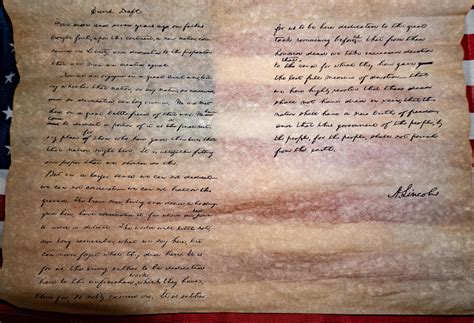 Four score and seven years ago our fathers
brought forth, upon this continent, a new nation, con-
ceived in Liberty, and dedicated to the proposition
that all men are created equal.
Now we are engaged in a great civil war, test-
ing whether that nation, or any nation, so conceived,
and so dedicated, can long endure. We are met
here on a great battle field of that war. We have
come
to dedicate a portion of it as the final rest-
ing place of those who here gave their lives that
that nation might live. It is altogether fitting
and proper that we should do this.
But in a larger sense we can not dedicate
we can not consecrate we can not hallow this
ground. The brave men, living and dead, who strug-
gled here, have consecrated it far above our poor power
to add or detract. The world will little note,
nor long remember, what we say here, but
can never forget what they did here. It is
for us, the living, rather to be dedicated
work
here to the unfinished which they have,
thus far, so nobly carried on. It is rather
for us to be here dedicated to the great
task remaining before us that from these
honored dead we take increased devotion
that
to the cause for which they here gave
the last full measure of devotion that
we here highly resolve that these dead
shall not have died in vain; that the
nation shall have a new birth of freedom,
and that this government of the people, by
the people, for the people, shall not perish
from the earth.
A. Lincoln